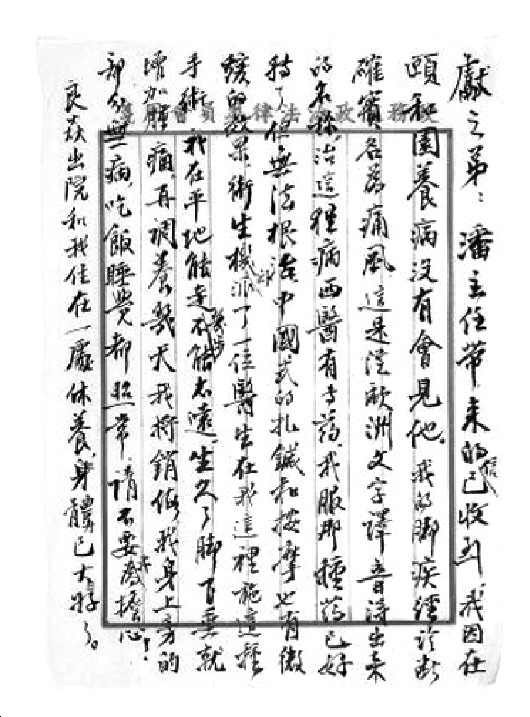 獻之弟：潘主任帶來的信已收到，我因在
頤和園養病沒有會見他。我的脚疾經診斷
確實名為痛風這是從歐洲文字譯音得出來
的名称，治這種病西醫有专药，我服那種药已好
转了，但無法根治。中國式的扎鍼和按摩也有微
緩的效果，衛生機派了一位醫生在我這裡施這種
手術。我在平地能走幾步不能太遠，坐久了脚下垂就
增加腫痛再調養幾天我將銷假，我身上旁的
部分無一病，吃飯睡覺都照常，請不要為擔心！
良焱出院和我住在一處休養，身體已大好了。